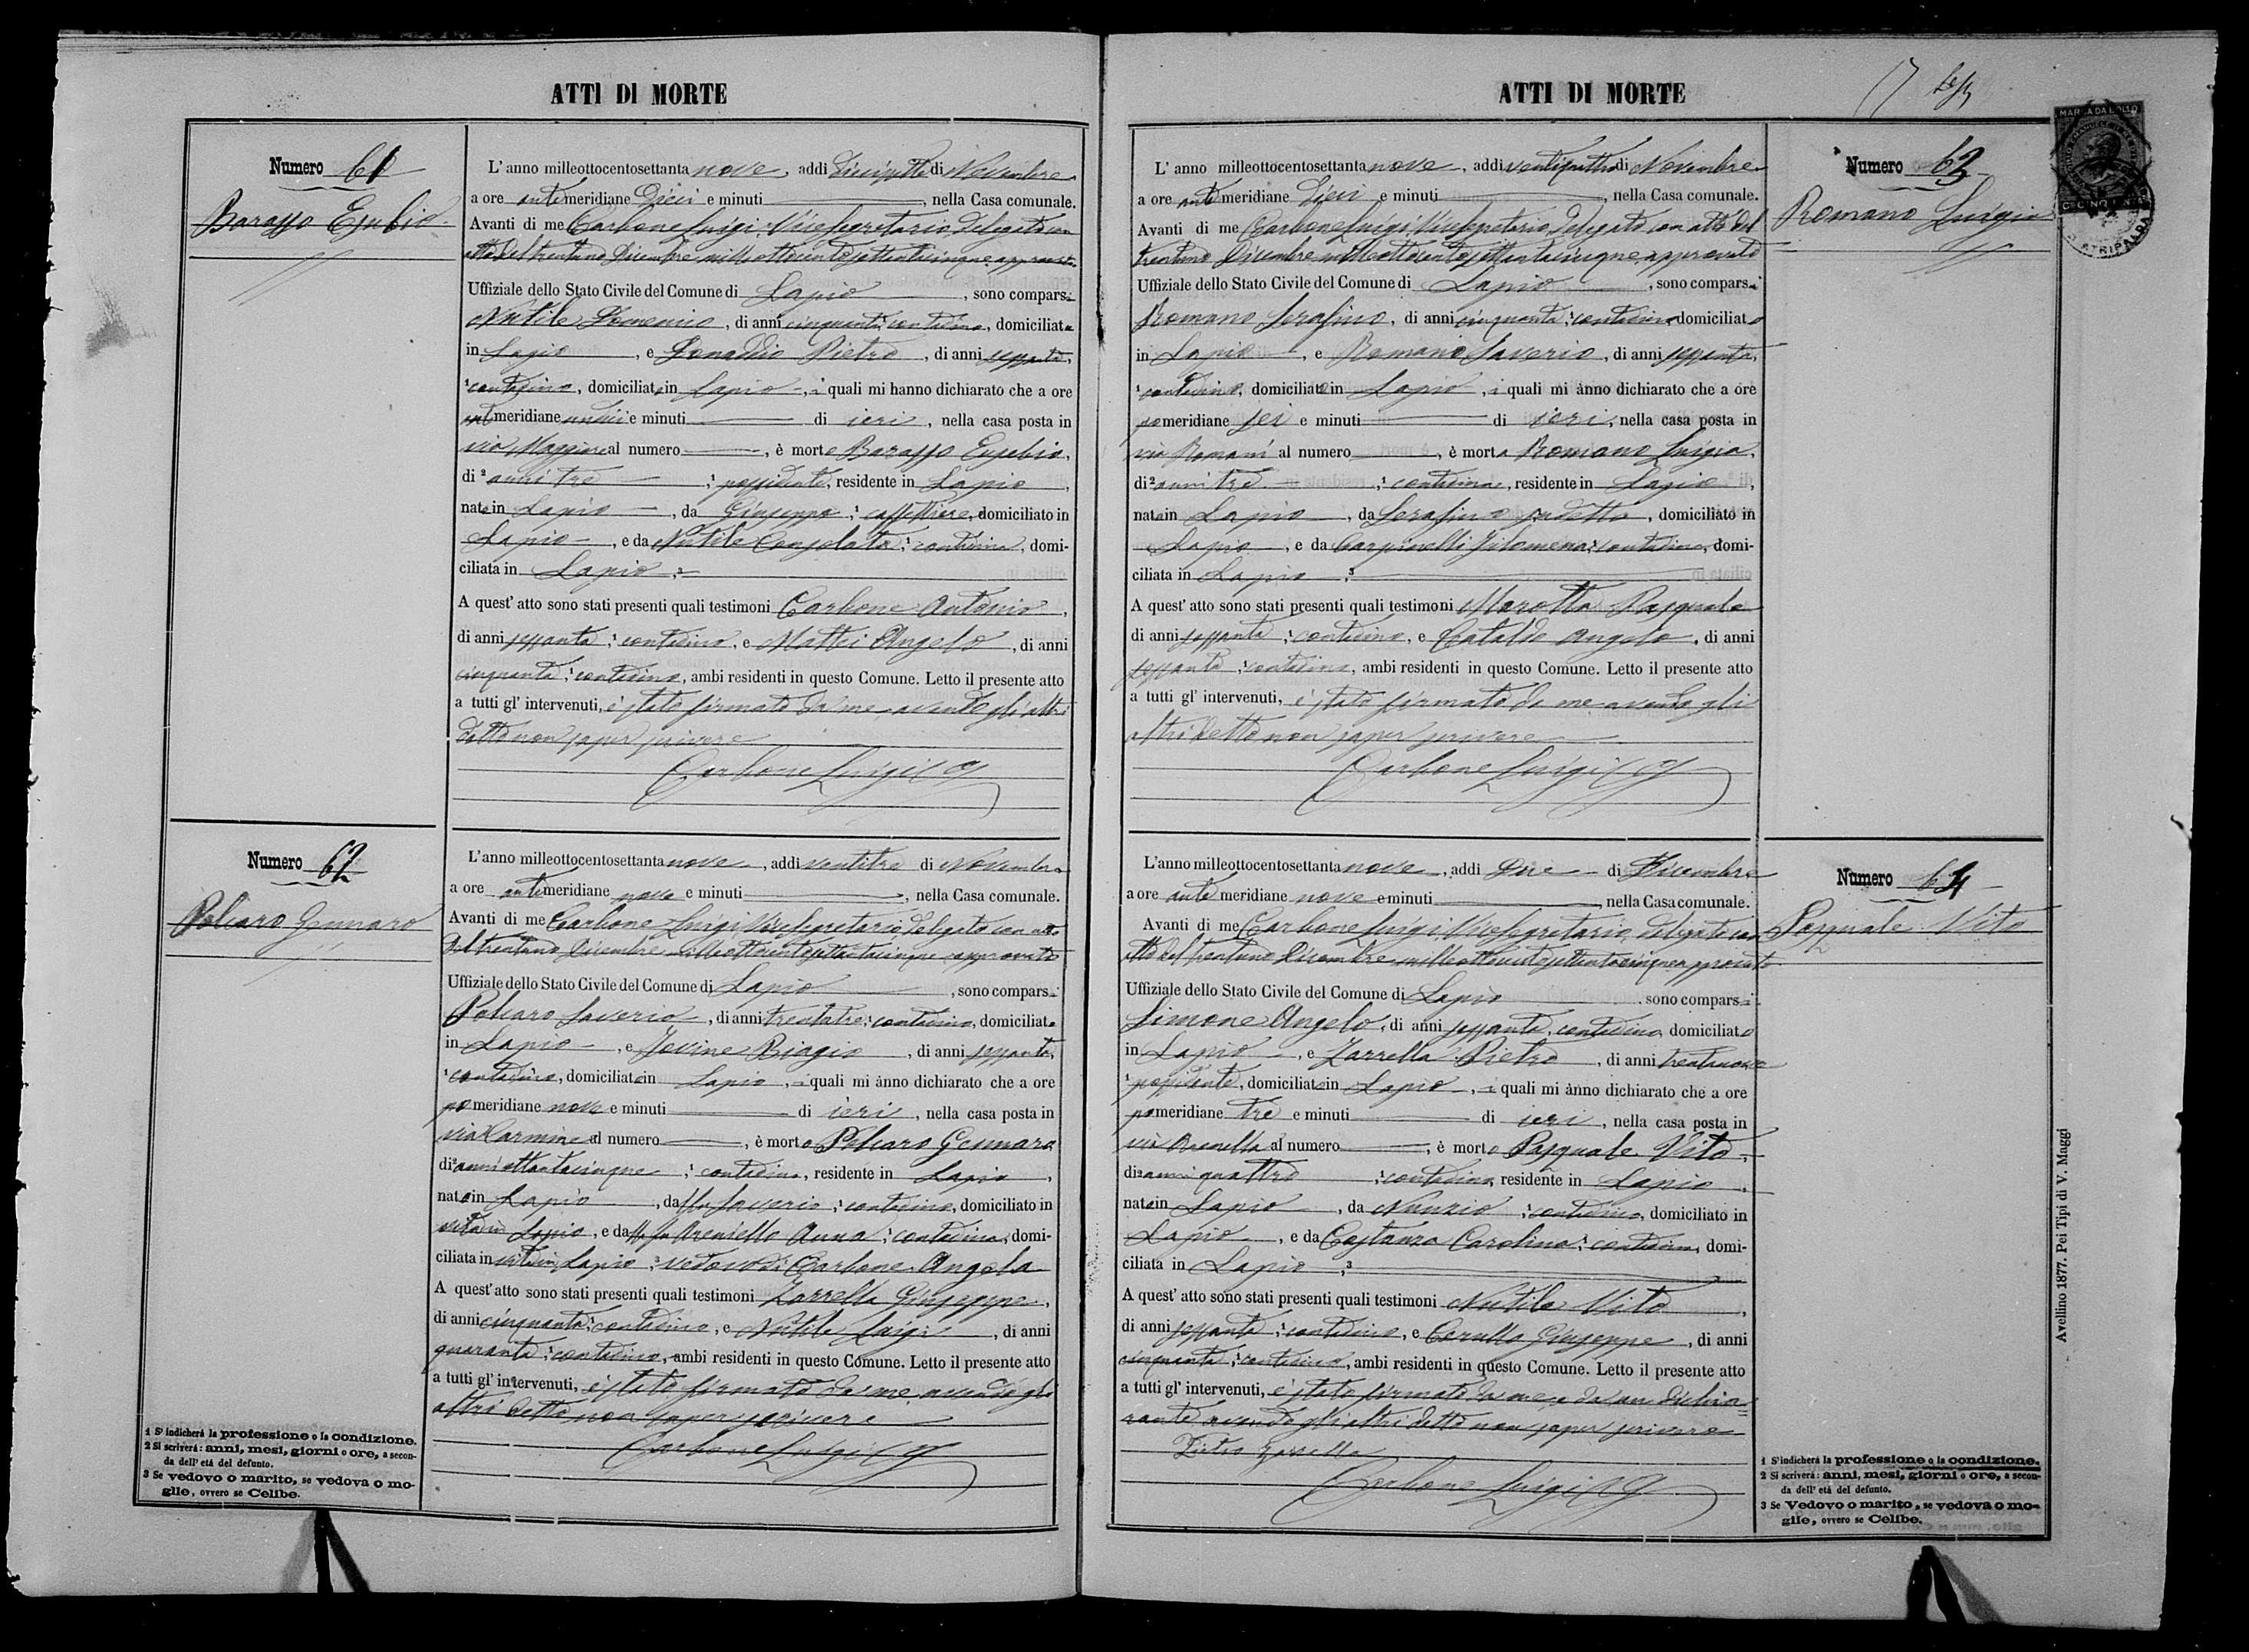 ATTI DI MORTE
Numero 61
Barasso Eusebio
L'anno milleottocentosettanta nove, addi diciasette di Novembre
a ore antimeridiane Dieci e minuti, nella Casa comunale.
Avanti di me Carbone Luigi Vicesegretario Delegato con
atto del trentuno Dicembre milleottocentosettantacinque approvato
Uffiziale dello Stato Civile del Comune di Lapio, sono comparsi
Nutile Domenico, di anni cinquanta, contadino, domiciliato
in Lapio, e Donaddio Pietro, di anni sessanta,
contadino, domiciliato in Lapio, i quali mi hanno dichiarato che a ore
antmeridiane undici e minuti di ieri, nella casa posta in
via Maggiore al numero, è morto Barasso Eusebio,
di anni tre, possidente, residente in Lapio,
nato in Lapio, da Giuseppe, caffettiere, domiciliato in
Lapio, e da Nutile Consolata, contadina, domi-
ciliata in Lapio
A quest' atto sono stati presenti quali testimoni Carbone Antonio,
di anni sessanta, contadino, e Mattei Angelo, di anni
cinquanta, contadino, ambi residenti in questo Comune. Letto il presente atto
a tutti gl' intervenuti, è stato firmato da me avendo gli altri
detto non saper scrivere
Carbone Luigi
Numero 62
Polcaro Gennaro
L'anno milleottocentosettanta nove, addi ventitre di Novembre
a ore antimeridiane nove e minuti, nella Casa comunale.
Avanti di me Carbone Luigi Vicesegretario delegato con atto
del trentuno Dicembre milleottocentosettantacinque approvato
Uffiziale dello Stato Civile del Comune di Lapio, sono comparsi
Polcaro Saverio, di anni trentatre, contadino, domiciliato
in Lapio, e Jovine Biagio, di anni sessanta,
contadino, domiciliato in Lapio, i quali mi ànno dichiarato che a ore
pomeridiane nove e minuti di ieri, nella casa posta in
via Carmine al numero, è morto Polcaro Gennaro
di anni ottantacinque, contadino, residente in Lapio,
nato in Lapio, da fu Saverio, contadino, domiciliato in
vita in Lapio, e da fu Arenello Anna, contadina, domi-
ciliata in vita in Lapio, vedovo di Carbone Angela
A quest' atto sono stati presenti quali testimoni Zarrella Giuseppe,
di anni cinquanta, contadino, e Nutile Luigi, di anni
quaranta, contadino, ambi residenti in questo Comune. Letto il presente atto
a tutti gl' intervenuti, è stato firmato da me avendo gli
altri detto non saper scrivere
Carbone Luigi
1 S' indicherà la professione o la condizione.
2 Si scriverà: anni, mesi, giorni o ore, a secon-
da dell' età del defunto.
3 Se vedovo o marito, se vedova o mo-
glie, ovvero se Celibe.
ATTI DI MORTE
17
Numero 63
Romano Luigia
MARCA DA BOLLO
ATRIPALDA
L' anno milleottocentosettanta nove, addi ventiquattro di Novembre
a ore antimeridiane Dieci e minuti, nella Casa comunale.
Avanti di me Carbone Luigi Vicesegretario Delegato con atto del
trentuno Dicembre milleottocentosettantacinque approvato
Uffiziale dello Stato Civile del Comune di Lapio, sono comparsi
Romano Serafino, di anni cinquanta, contadino domiciliato
in Lapio, e Romano Saverio, di anni sessanta,
contadino, domiciliato in Lapio, i quali mi ànno dichiarato che a ore
pomeridiane sei e minuti di ieri, nella casa posta in
via Romani al numero, è morta Romano Luigia,
di anni tre, contadina, residente in Lapio,
nata in Lapio, da Serafino sudetto, domiciliato in
Lapio, e da Carpinelli Filomena, contadina, domi-
ciliata in Lapio
A quest' atto sono stati presenti quali testimoni Marotta Pasquale
di anni sessanta, contadino, e Cataldo Angelo, di anni
sessanta, contadino, ambi residenti in questo Comune. Letto il presente atto
a tutti gl' intervenuti, è stato firmato da me avendo gli
altri detto non saper scrivere
Carbone Luigi
Numero 64
Pasquale Vito
L'anno milleottocentosettanta nove, addi Due di Dicembre
a ore antimeridiane nove e minuti, nella Casa comunale.
Avanti di me Carbone Luigi Vicesegretario delegato con
atto del trentuno Dicembre milleottocentosettantacinque approvato
Uffiziale dello Stato Civile del Comune di Lapio, sono comparsi
Simone Angelo, di anni sessanta, contadino domiciliato
in Lapio, e Zarrella Pietro, di anni trentanove
possidente, domiciliato in Lapio, i quali mi ànno dichiarato che a ore
pomeridiane tre e minuti di ieri, nella casa posta in
via al numero, è morto Pasquale Vito,
di anni quattro, contadino, residente in Lapio,
nato in Lapio, da Nunzio, contadino, domiciliato in
Lapio, e da Costanza Carolina, contadina, domi-
ciliata in Lapio
A quest' atto sono stati presenti quali testimoni Nutile Vito,
di anni sessanta, contadino, e Cerullo Giuseppe, di anni
cinquanta, contadino, ambi residenti in questo Comune. Letto il presente atto
a tutti gl' intervenuti, è stato firmato da me e da un dichia
rante avendo gli altri detto non saper scrivere
Pietro Zarrella
Carbone Luigi
1 S'indicherà la professione o la condizione.
2 Si scriverà: anni, mesi, giorni o ore, a secon-
da dell' età del defunto.
3 Se Vedovo o marito, se vedova o mo-
glie, ovvero se Celibe.
Avellino 1877. Pei Tipi di V. Maggi